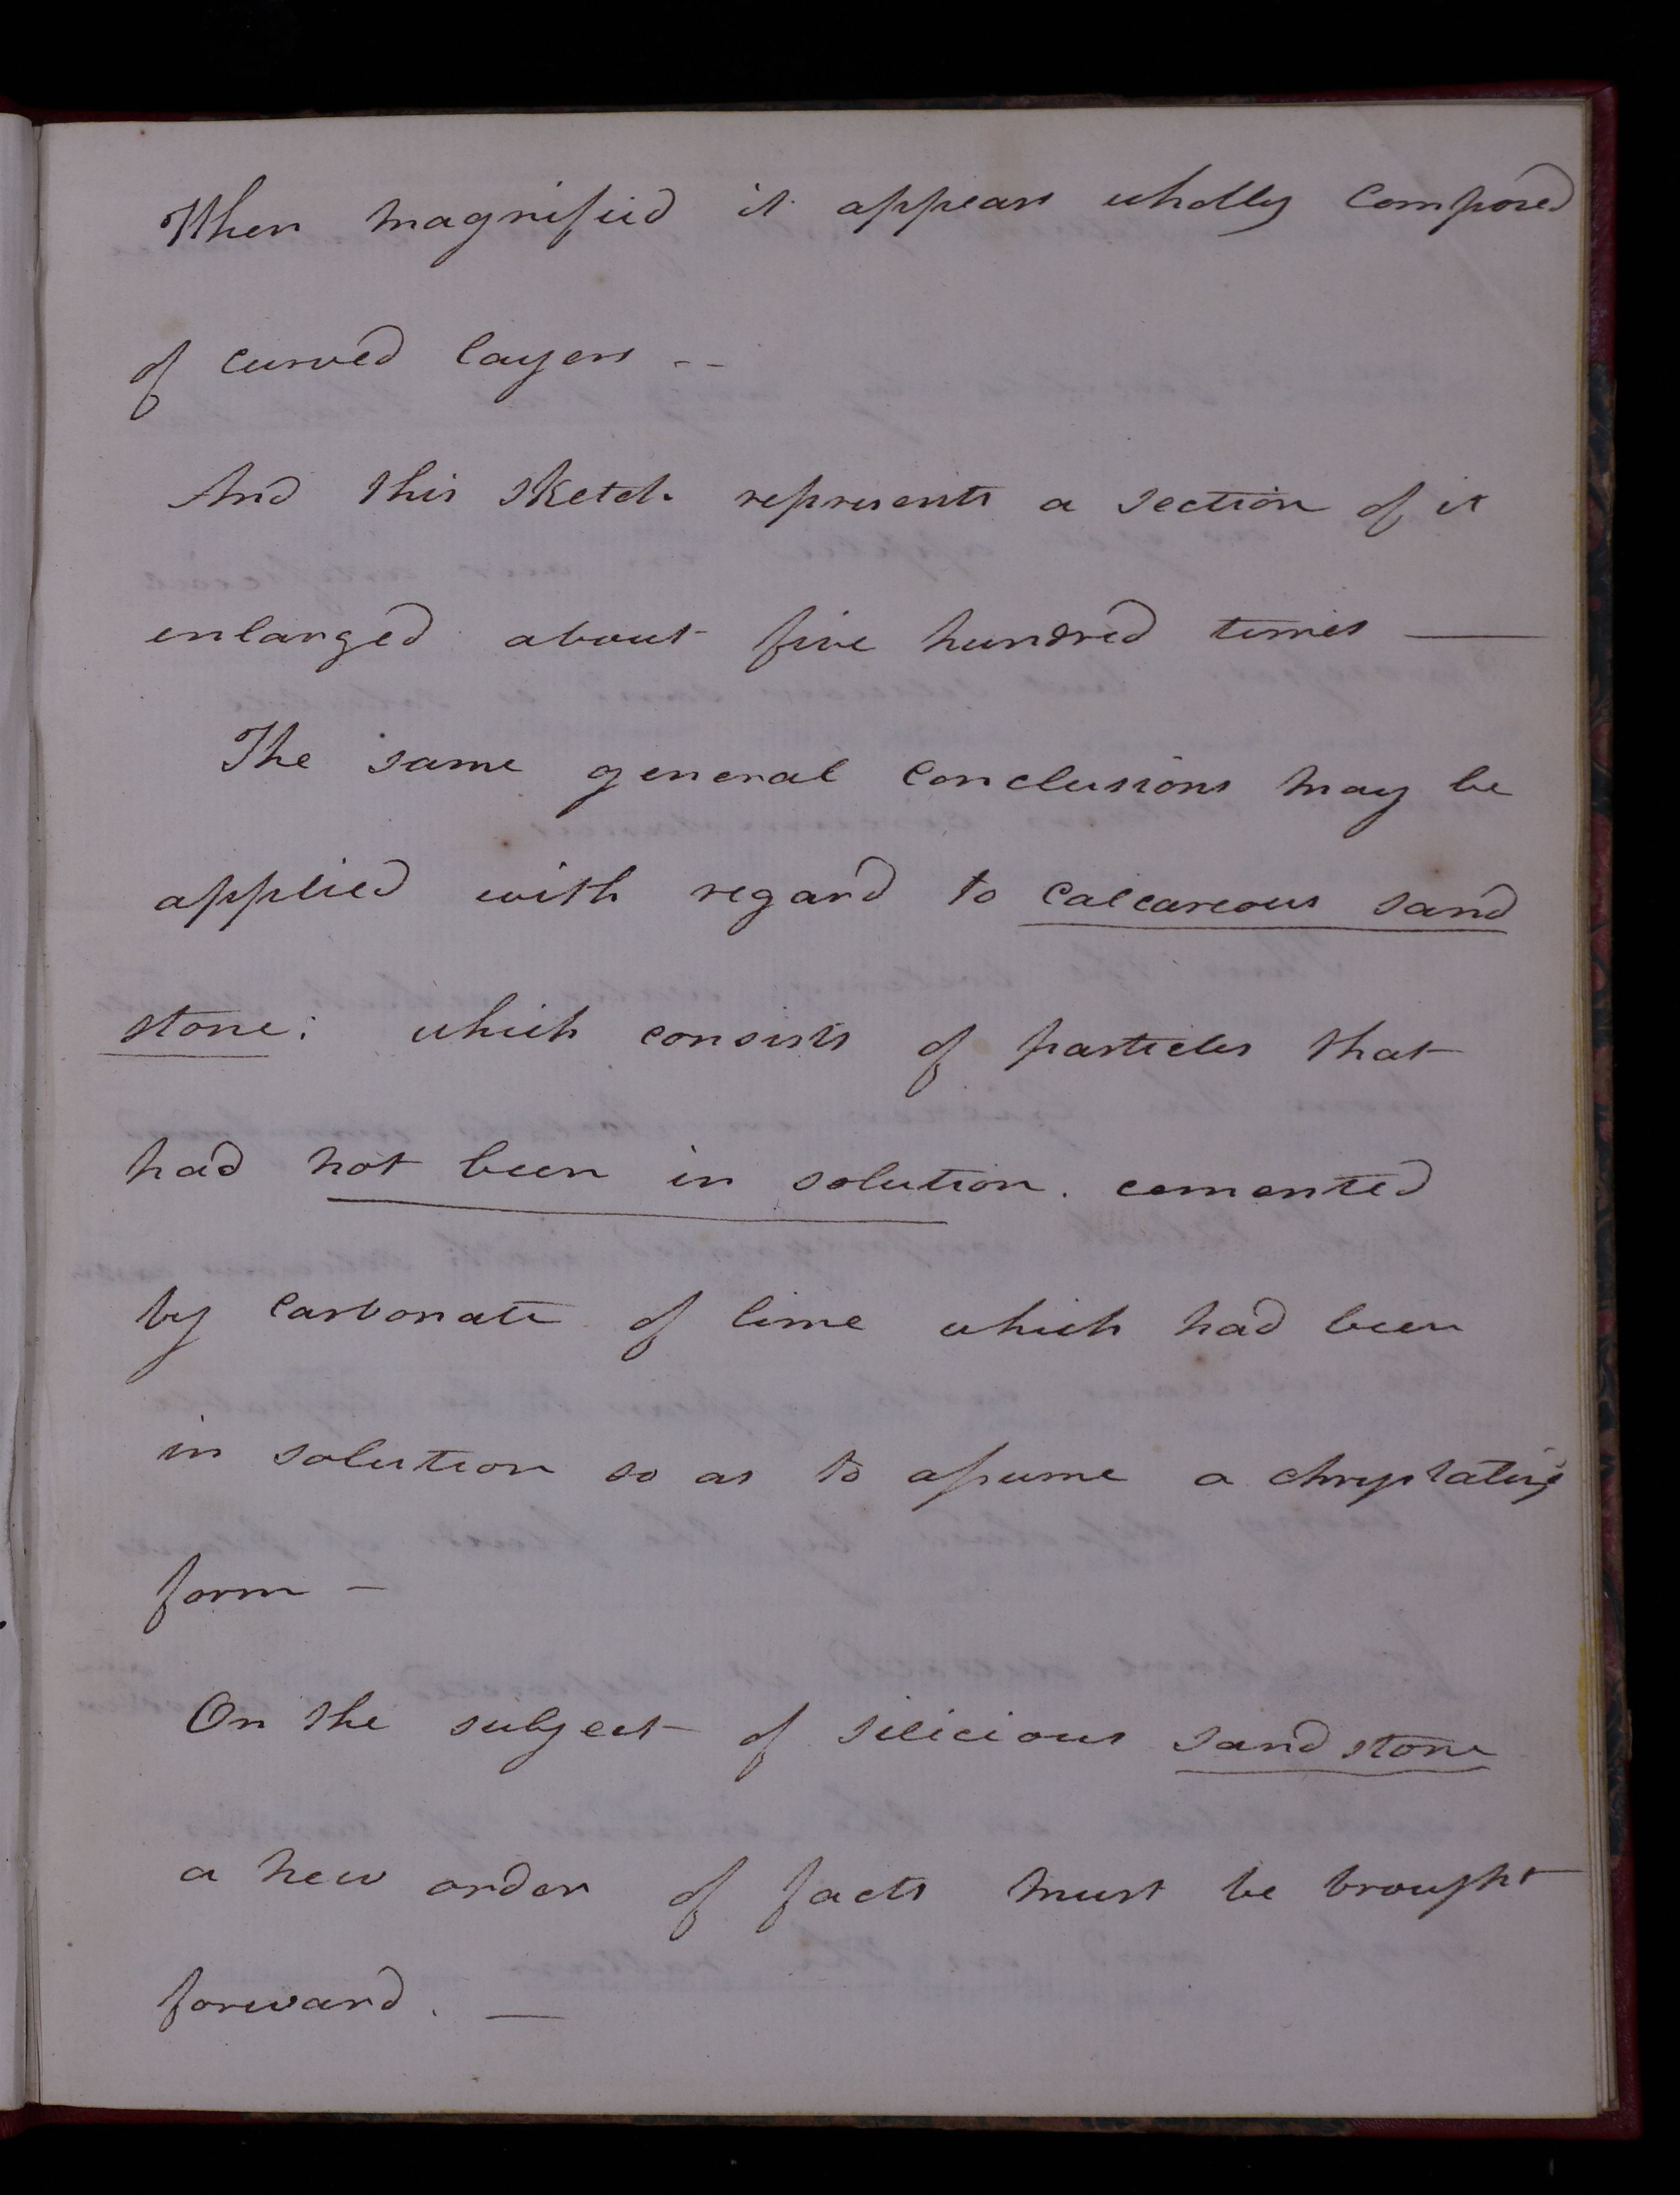 When magnified it appears wholly composed
of curved layers --
And this sketch represents a section of it
enlarged about five hundred times —
The same general conclusions may be
applied with regard to calcareous sand
stone; which consists of particles that
had not been in solution. cemented
by carbonate of lime which had been
in solution so as to assume a
form –
On the subject of silicious sand stone
a new order of facts must be brought
forward. —